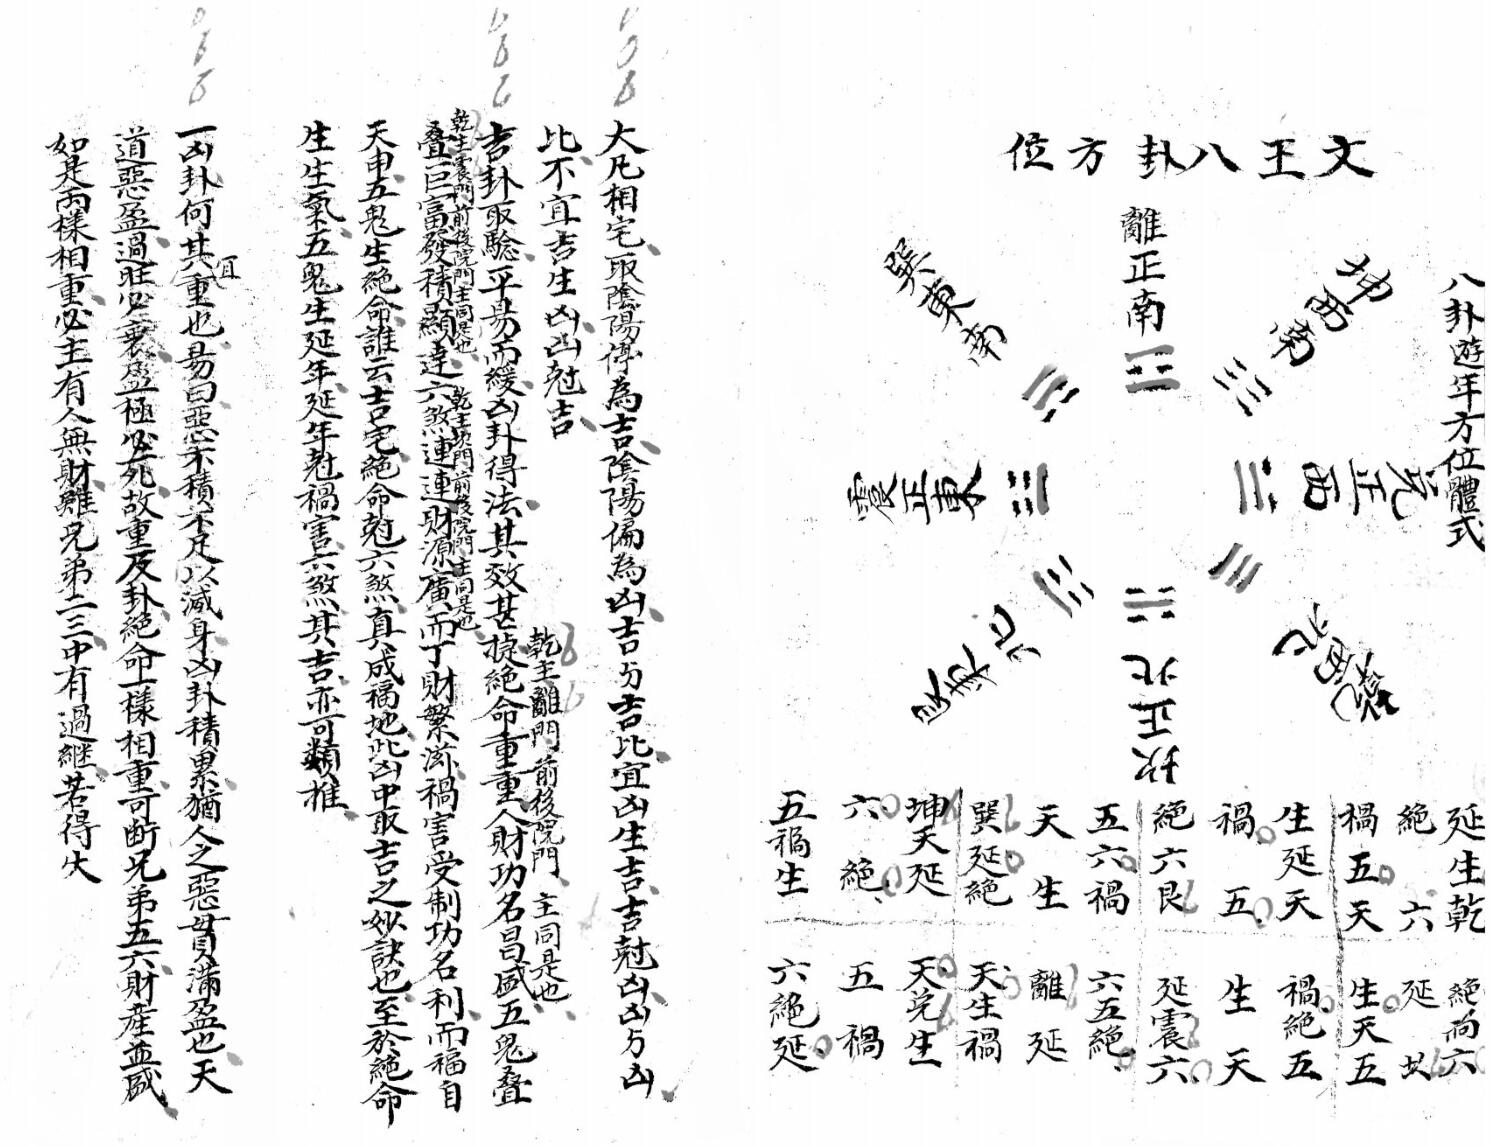 八卦遊年方位體式
文王八卦方位
離正南
坤西南
兌正西
乾西北
坎正北
艮東北
震正東
巽東南
延生乾
絕　六
禍五天
生延天
禍　五
絕六艮
五六禍
天　生
巽延絕
坤天延
六　絕
五禍生
絕禍六
延　坎
生天五
禍絕五
生　天
延震六
六五絕
離　延
天生禍
天兌生
五　禍
六絕延
大凡相宅取陰陽停為吉陰陽偏為凶吉与吉比宜凶生吉吉尅凶凶与凶
比不宜吉生凶凶尅吉
乾主離門前後院門主同是也
吉卦取驗平易而緩凶卦得法其效甚捷絕命重重人財功名昌盛五鬼叠
乾主震門前後院門主同是也　乾主坎門前後院門主同是也
叠巨富發積顯達六煞連連財源廣而丁財繁滋禍害受制功名利而福自
天申五鬼生絕命誰云吉宅絕命尅六煞真成福地此凶中取吉之妙訣也至於絕命
生生氣五鬼生延年延年尅禍害六煞其吉亦可類推
一凶卦何其宜重也易曰惡不積不足以滅身凶卦積累猶人之惡貫滿盈也天
道惡盈過旺必衰盈極必死故重及卦絕命一樣相重可斷兄弟五六財產並盛
如是兩樣相重必主有人無財難兄弟二三中有過継若得失